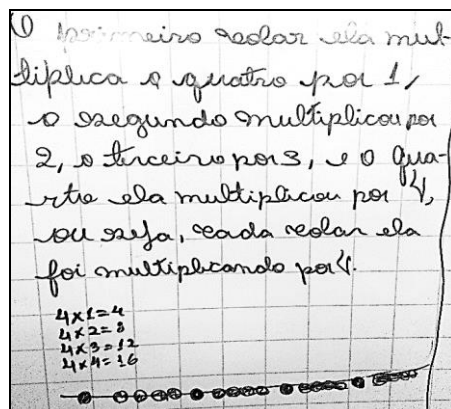 O primeiro colar ela mul-
tiplica o quatro por 1,
o segundo multiplicou por
2, o terceiro por 3, e o qua-
rto ela multiplicou por 4,
ou seja, cada colar ela
foi multiplicando por 4.
4x1=4
4x2=8
4x3=12
4x4=16